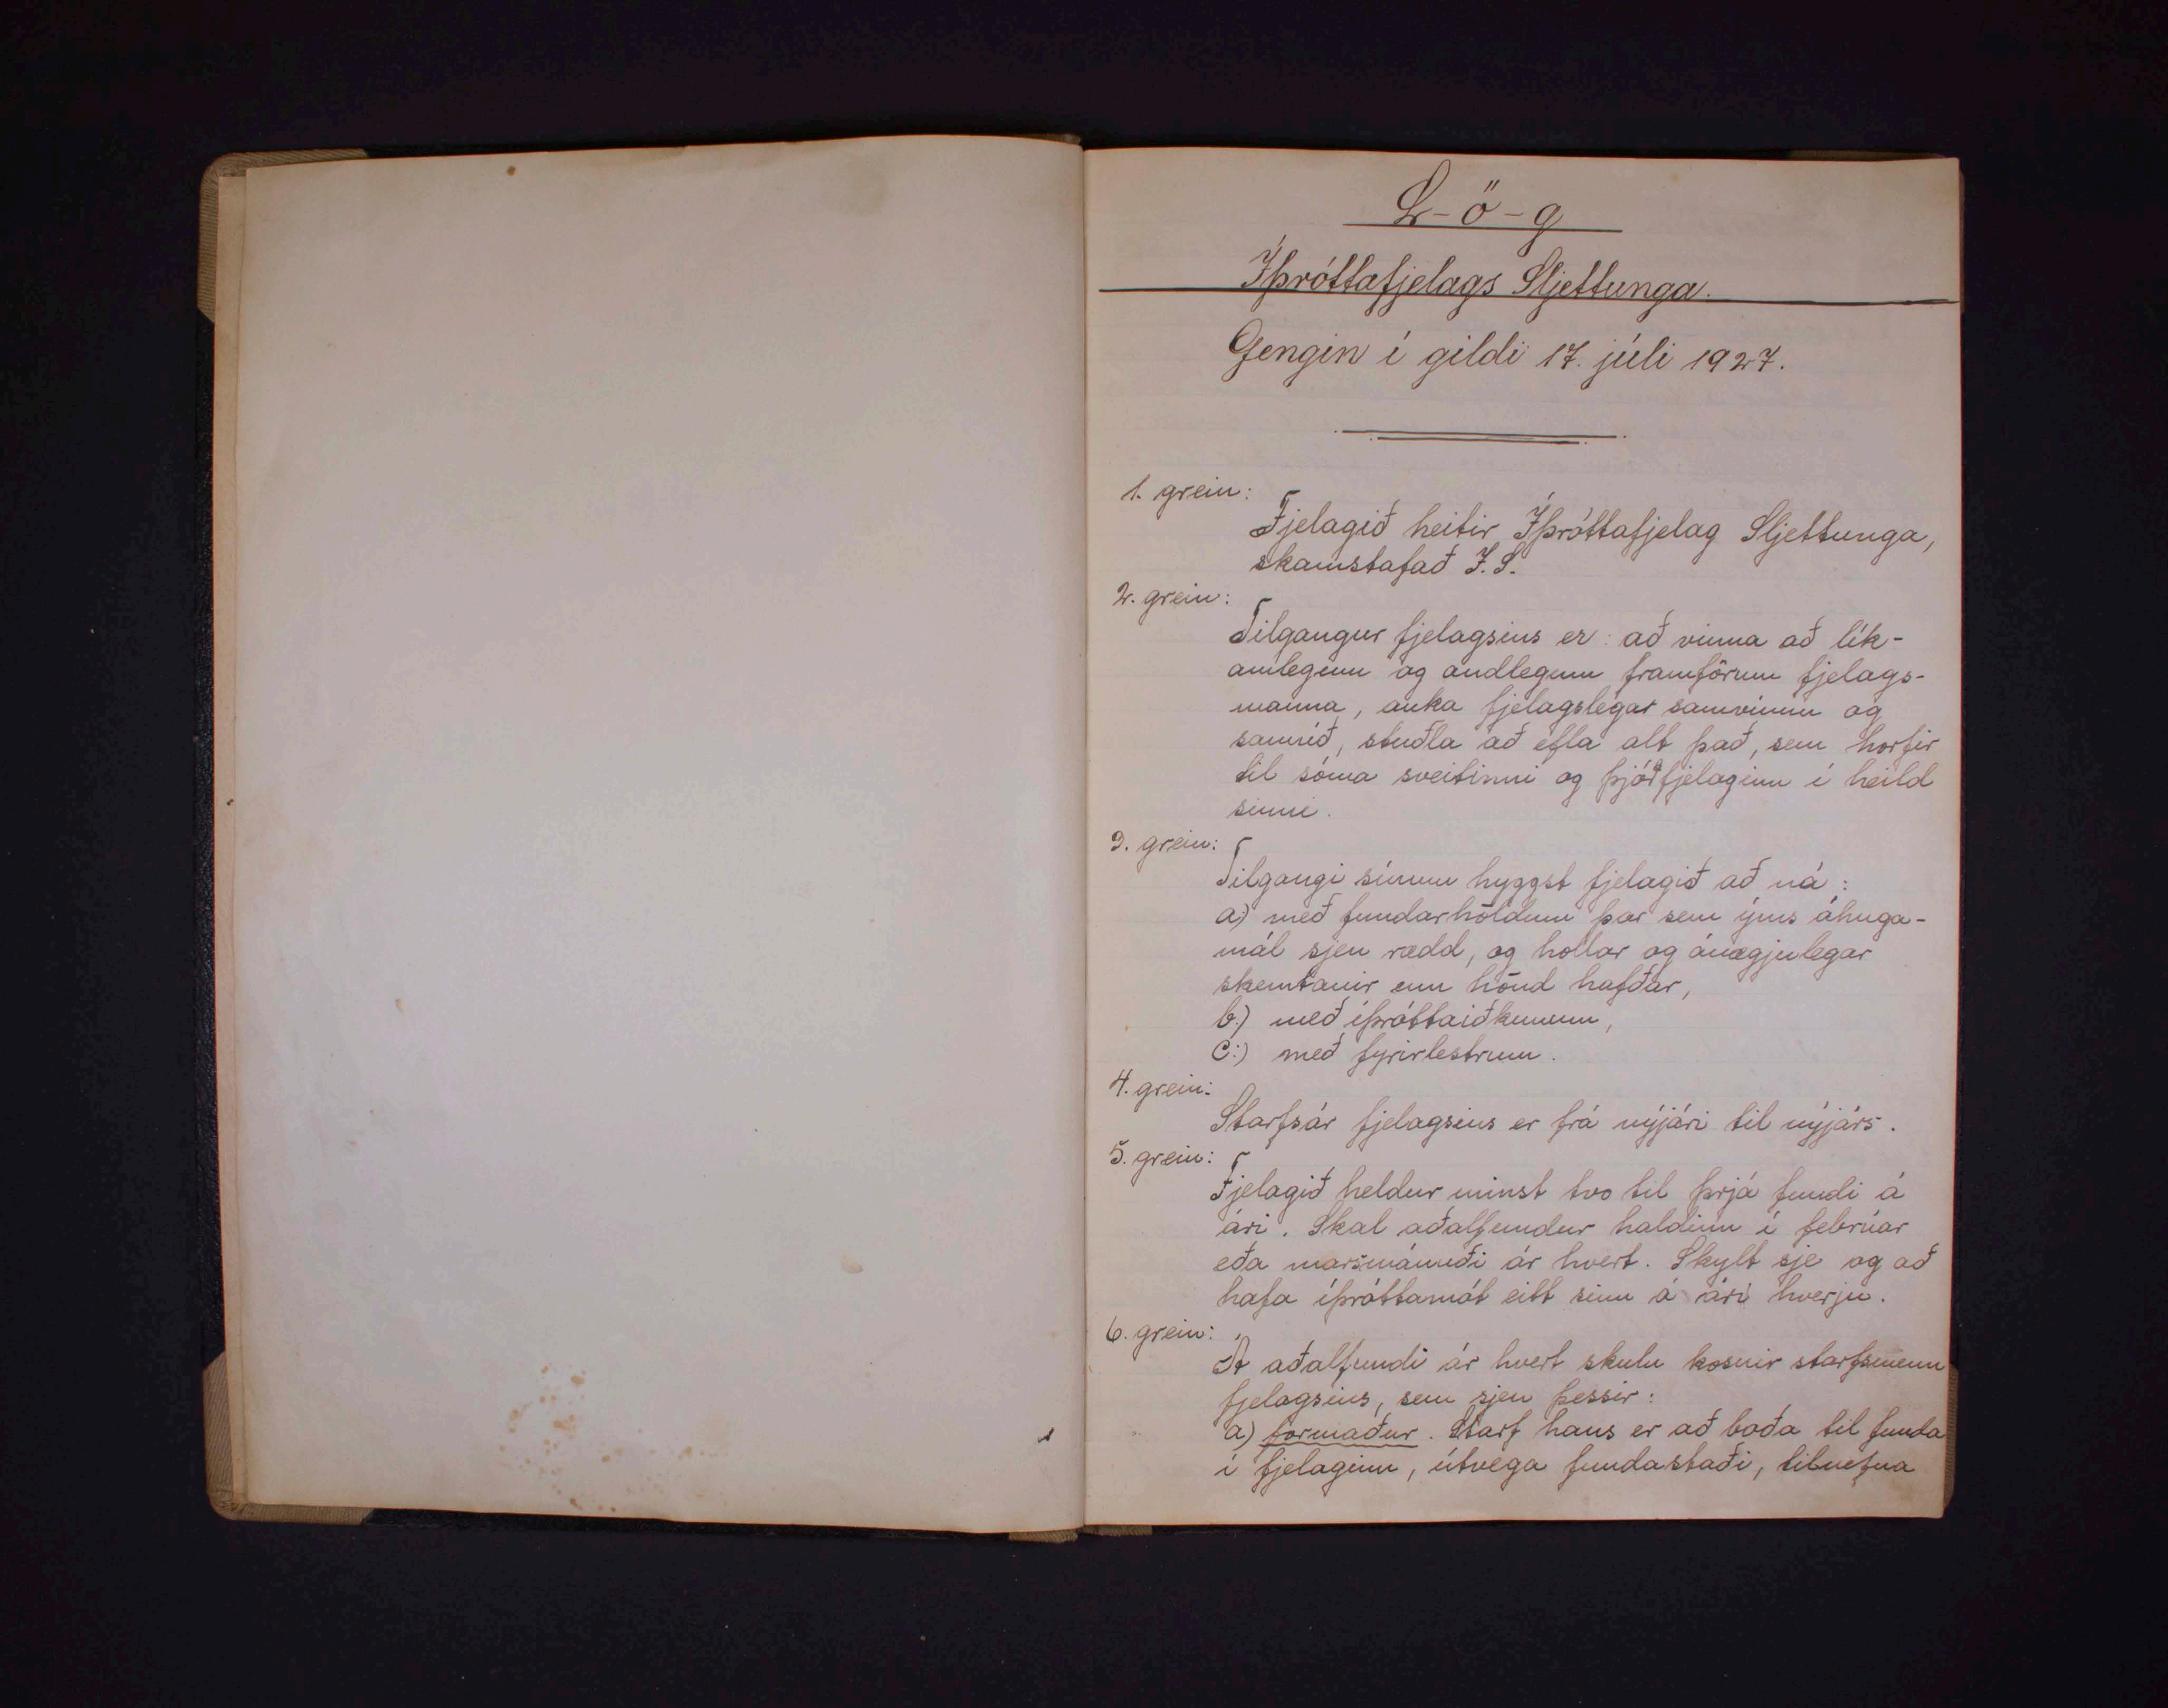 L-ö-g
Íþróttafjelags Sljettunga.
Gengin í gildi 17. júli 1927.
1. grein:
Fjelagið heitir Íþróttafjelag Sljettunga,
skamstafað Í. S.
2. grein:
Tilgangur fjelagsins er: að vinna að lík-
amlegum og andlegum framförum fjelags-
manna, auka fjelagslegar samvinnu og
samúð, stuðla að efla alt það, sem horfir
til sóma sveitinni og þjóðfjelaginu í heild
sinni.
3. grein:
Tilgangi sínum hyggst fjelagið að ná:
a) með fundarhöldum þar sem ýms áhuga-
mál sjeu rædd, og hollar og ánægjulegar
skemtanir um hönd hafðar,
b.) með íþróttaiðkunum,
c:) með fyrirlestrum.
4. grein:
Starfsár fjelagsins er frá nýjári til nýjárs.
5. grein:
Fjelagið heldur minst tvo til þrjá fundi á
ári. Skal aðalfundur haldinn í febrúar
eða marsmánuði ár hvert. Skylt sje og að
hafa íþróttamót eitt sinn á ári hverju.
6. grein:
Á aðalfundi ár hvert skulu kosnir starfsmenn
fjelagsins, sem sjeu þessir:
a) formaður. Starf hans er að boða til funda
í fjelaginu, útvega fundastaði, tilnefna